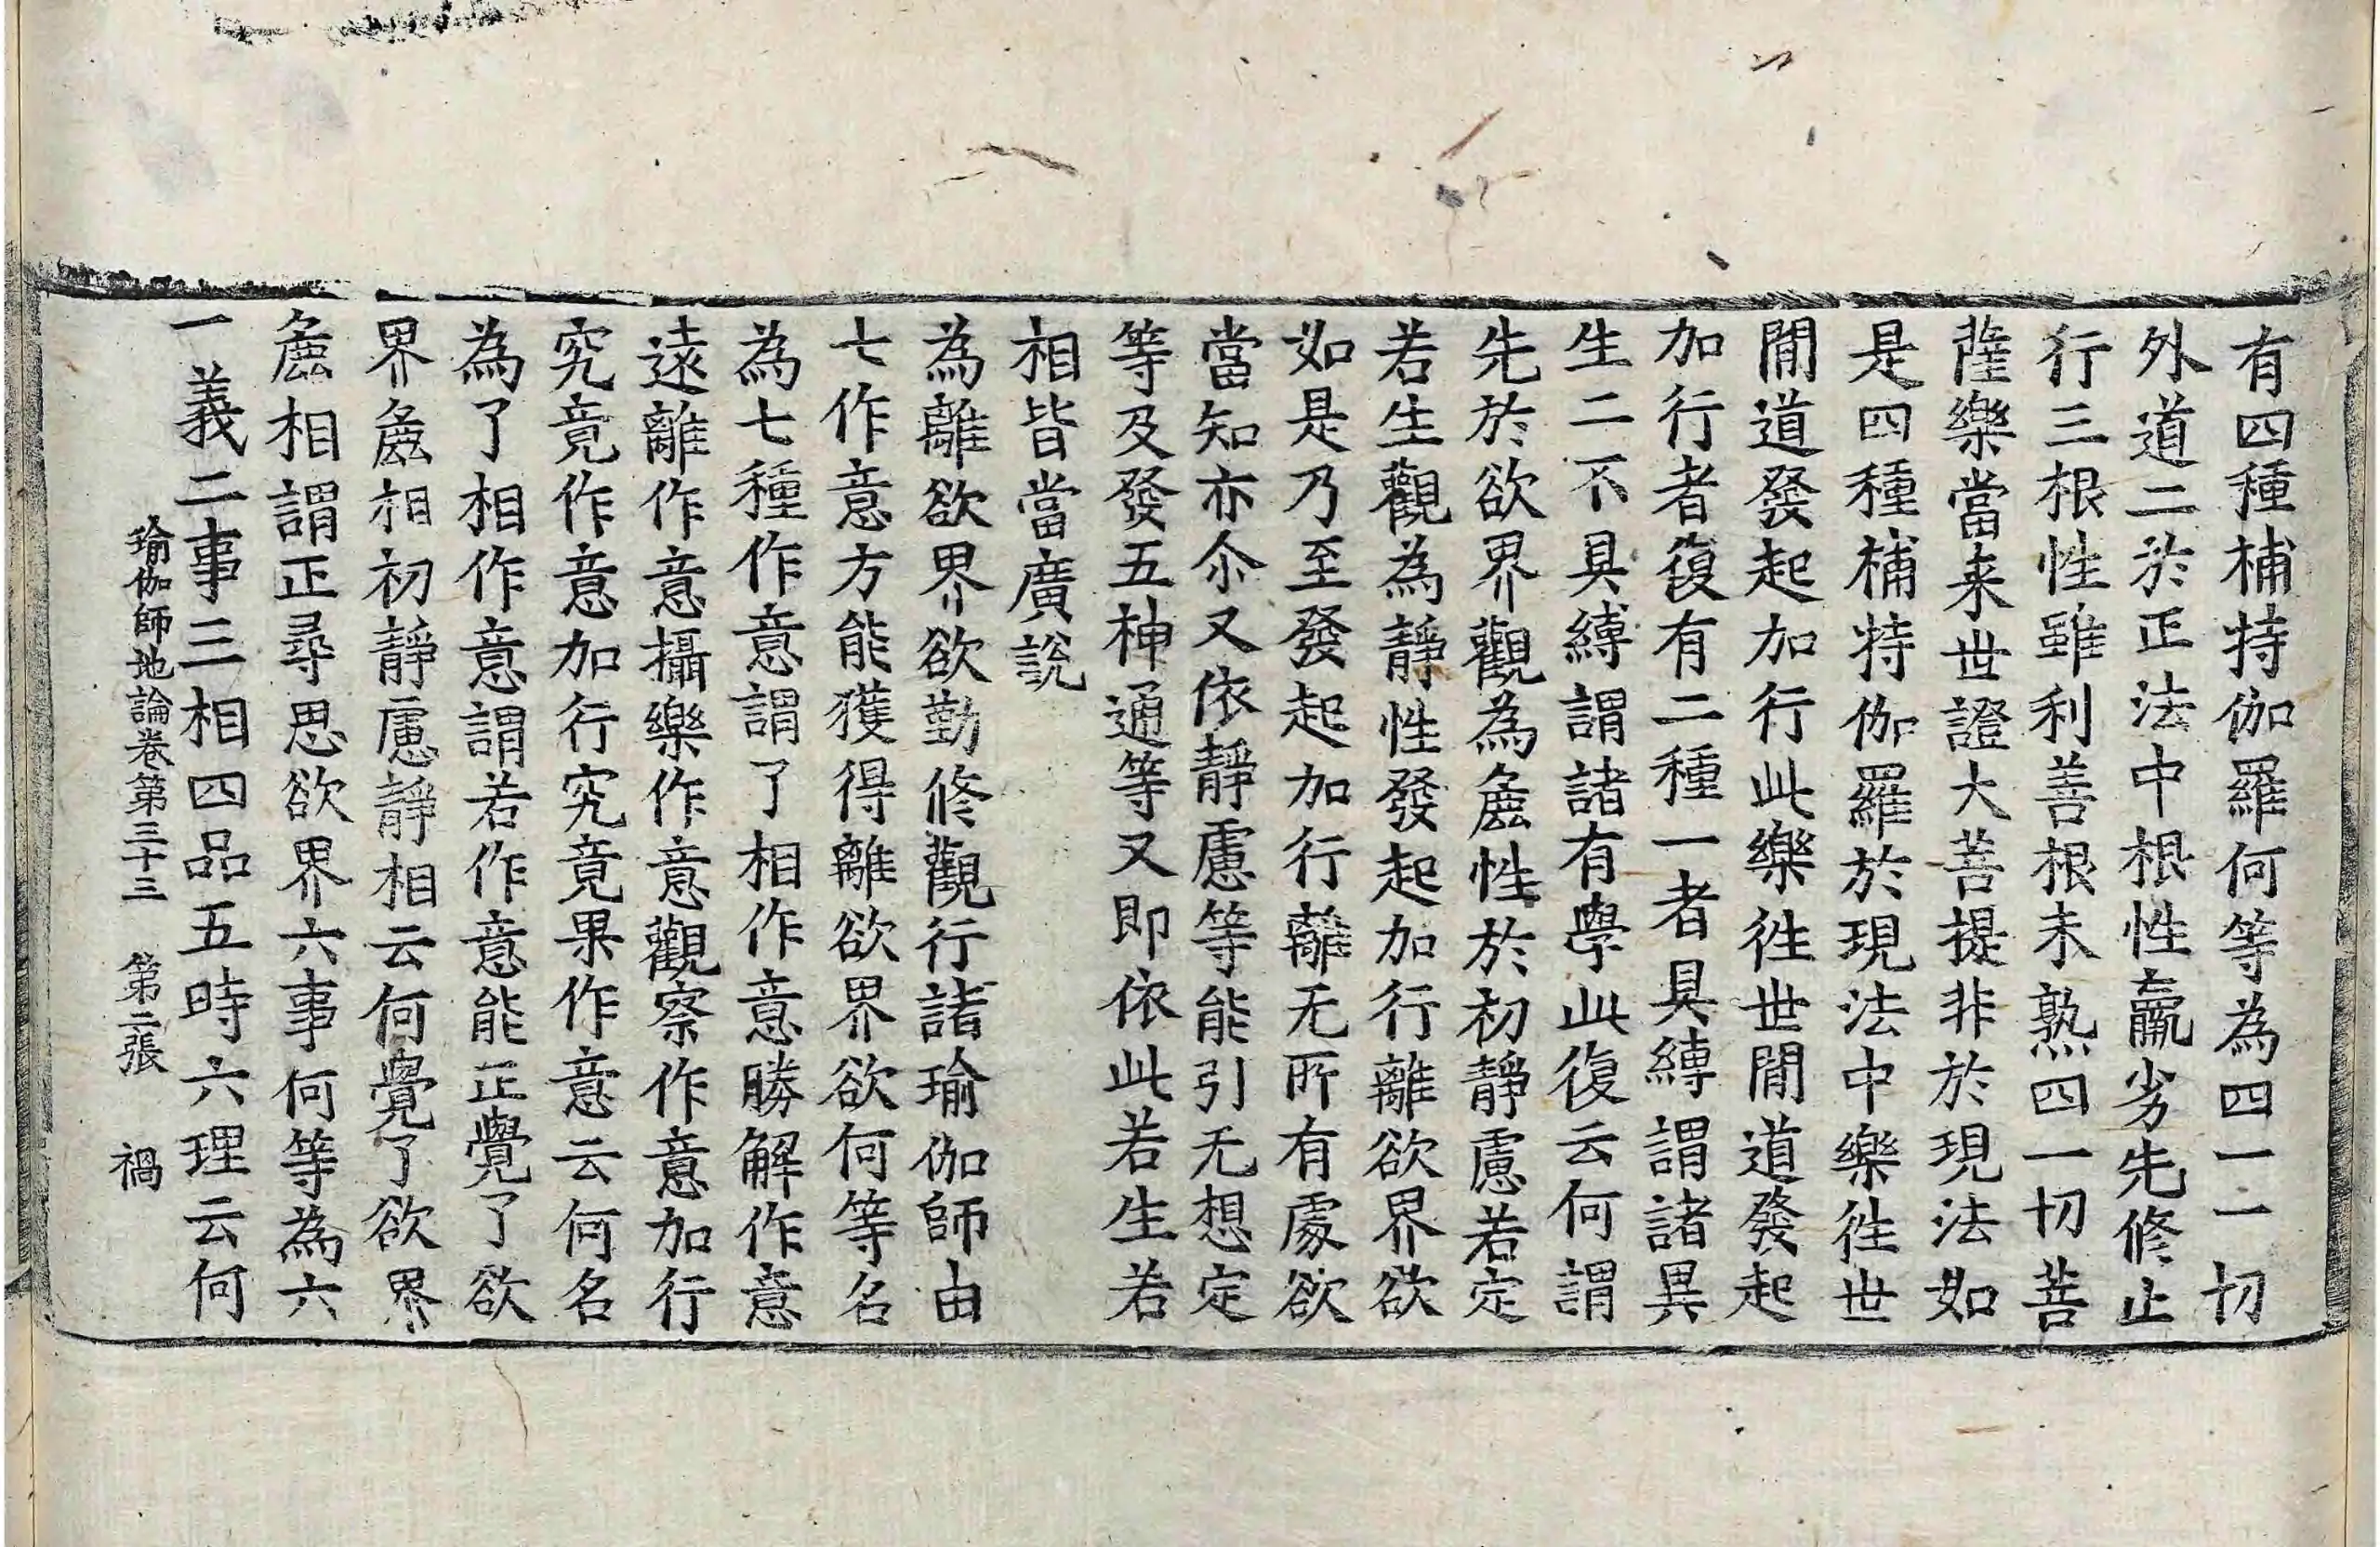 有四種補特伽羅何等為四一一切
外道二於正法中根性羸劣先修止
行三根性雖利善根未熟四一切菩
薩樂當来世證大菩提非於現法如
是四種補特伽羅於現法中樂徃世
閒道發起加行此樂徃世閒道發起
加行者復有二種一者具縛謂諸異
生二不具縛謂諸有學此復云何謂
先於欲界觀為麁性於初靜慮若定
若生觀為靜性發起加行離欲界欲
如是乃至發起加行離无所有處欲
當知亦尒又依靜慮等能引无想定
等及發五神通等又即依此若生若
相皆當廣說
為離欲界欲勤修觀行諸瑜伽師由
七作意方能獲得離欲界欲何等名
為七種作意謂了相作意勝解作意
遠離作意攝樂作意觀察作意加行
究竟作意加行究竟果作意云何名
為了相作意謂若作意能正覺了欲
界麁相初靜慮靜相云何覺了欲界
麁相謂正尋思欲界六事何等為六
一義二事三相四品五時六理云何
瑜伽師地論卷第三十三 第二張 禍